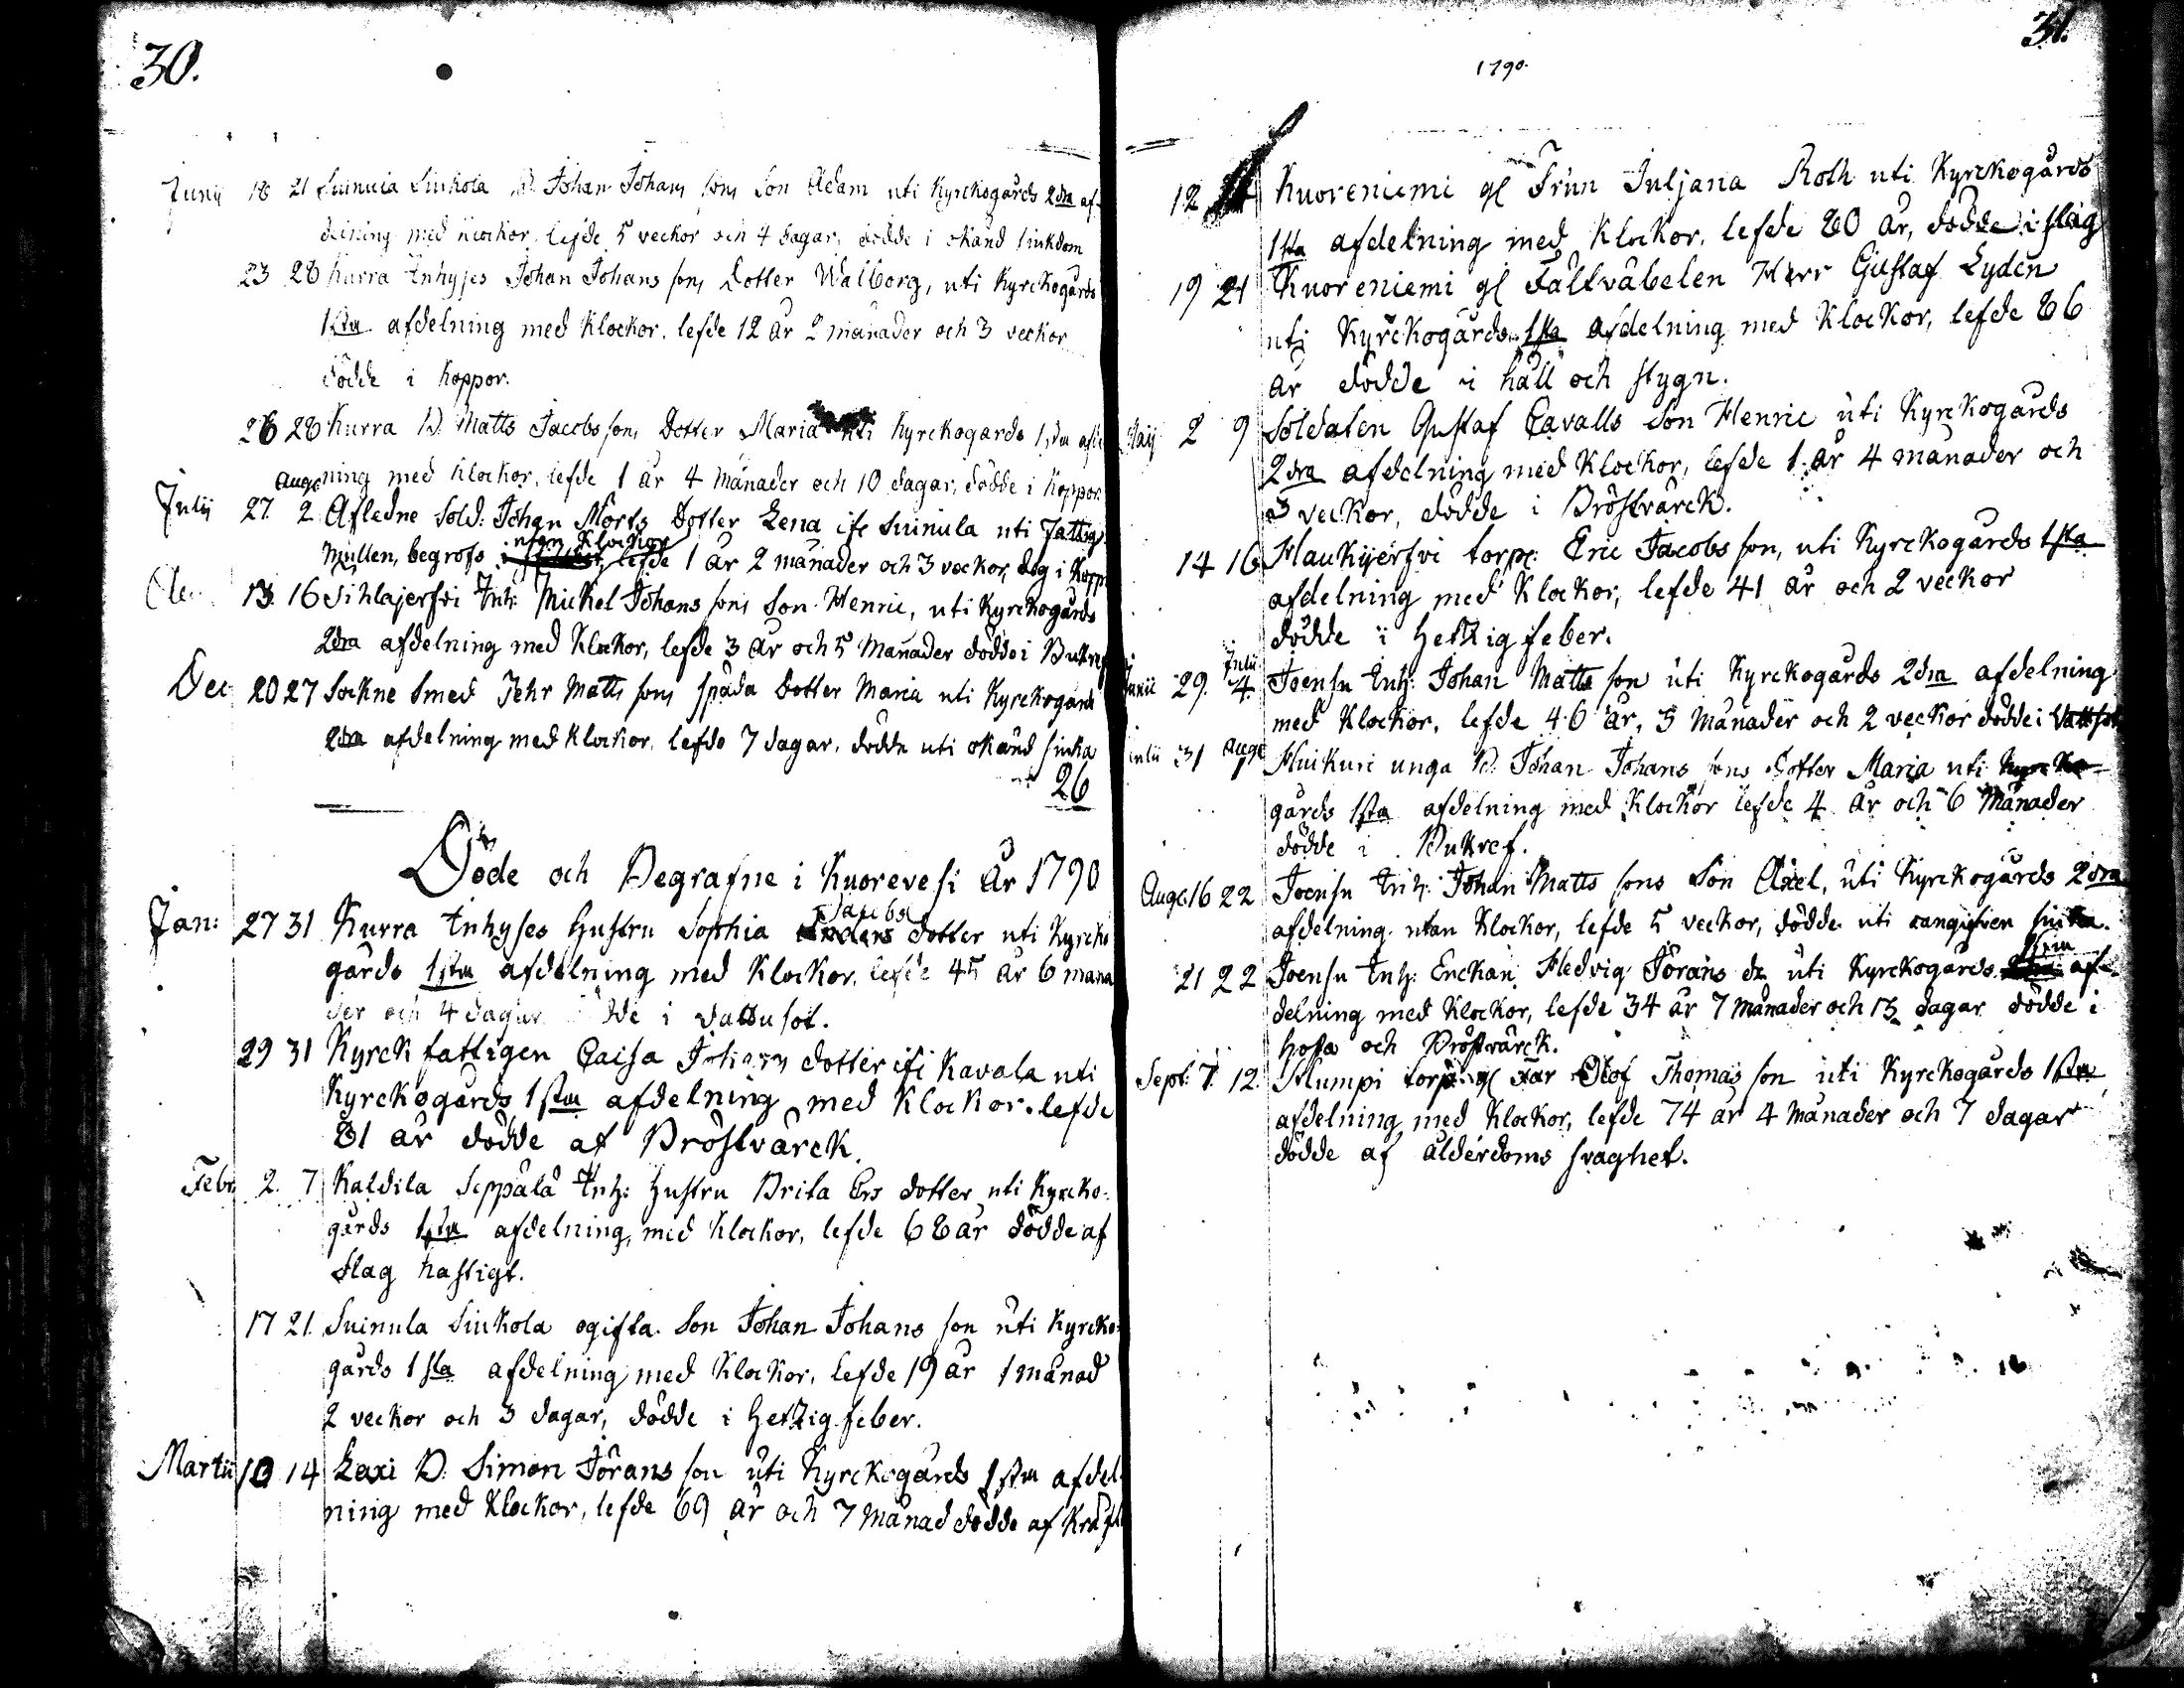 30.
Junij 18 21 Suinula Siukola B. Johan Johans sons Son Adam uti Kyrckogårds 2dra af-
delning med klockor, lefde 5 veckor och 4 dagar, dödde i okänd siukdom
23 28 Kurra Inhyses Johan Johans sons Dotter Walborg, uti Kyrckogårds
1sta afdelning med Klockor. lefde 12 år 2 månader och 3 veckor
dödde i koppor.
26 28 Kurra B. Matts Jacobs sons Dotter Maria uti Kyrckogårds 1sta afdel
ning med Klockor, lefde 1 år 4 Månader och 10 dagar, dödde i koppor
Julij 27. Aug: 2 Afledne Sold: Johan Morts Dotter Lena ifr. Suinula uti Fattig
Mullen, begrofs utan Klockor lefde 1 år 2 månader och 3 veckor, dog i Kopp
13. 16 Sihlajerfvi Inh: Mickel Johans sons Son Henric, uti Kyrckogårds
2dra afdelning med Klockor, lefde 3 år och 5 Månader dödde i Bukref
Dec 20 27 Sockne Smed Jehr Matts sons späda Dotter Maria uti Kyrckogårds
2dra afdelning med Klockor, lefde 7 dagar, dödde uti okänd siuka
26
Döde och Begrafne i Kuorevesi År 1790
Jan: 27 31 Kurra Inhyses Hustru Sophia Jacobs dotter uti Kyrcko
gårds 1sta afdelning med Klockor, lefde 45 år 6 måna
der och 4 dagar dödde i vattusot.
29 31 Kyrck fattigen Caisa Johans dotter ifr Kavala uti
Kyrckogårds 1sta afdelning med Klockor. lefde
81 år dödde af Bröstvärck.
Febr 2. 7 Kaldila Seppälä Inh: hustru Brita Ers dotter uti Kyrcko-
gårds 1sta afdelning, med Klockor, lefde 68 år dödde af
Slag hastigt.
17 21. Suinula Siukola ogifta Son Johan Johans son uti Kyrcko-
gårds 1sta afdelning med Klockor, lefde 19 år 1 månad
2 veckor och 3 dagar, dödde i Hetzig feber.
Martii 10 14 Laxi B. Simon Jörans son uti Kyrckogårds 1sta afdel-
ning med Klockor, lefde 69 år och 7 Månad dödde af Kräft
31.
1790.
12 Kuoreniemi gl Frun Juljana Roth uti Kyrckogårds
1sta afdelning med Klockor, lefde 80 år, dödde i slag
19 21 Kuoreniemi gl Fältväbelen Herr Gustaf Lydén
uti Kyrckogårds 1sta afdelning med Klockor, lefde 86
år dödde i håll och stygn.
Maij 2 9 Soldaten Gustaf Cavalls Son Henric uti Kyrckogårds
2dra afdelning med Klockor, lefde 1 år 4 månader och
3 veckor, dödde i Bröstvärck.
14 16 Haukijerfvi torp: Eric Jacobs son, uti Kyrckogårds 1sta
afdelning med Klockor, lefde 41 år och 2 veckor
dödde i Hetzig feber.
Junii 29. Julii 4. Joensu Inh: Johan Matts son uti Kyrckogårds 2dra afdelning
med Klockor, lefde 46 år, 5 Månader och 2 veckor dödde i Vattsot
Julii 31 Aug: 1 Huikuri unga B. Johan Johans sons Dotter Maria uti Kyrcko-
gårds 1sta afdelning med Klockor lefde 4 år och 6 Månader
dödde i Bukref.
Aug: 16 22 Joensu Inh: Johan Matts sons Son Axel, uti Kyrckogårds 2dra
afdelning utan Klockor, lefde 5 veckor, dödde uti oangifven siuka.
21 22 Joensu Inh: Enckan Hedvig Jörans dr uti Kyrckogårds 1sta af-
delning med Klockor, lefde 34 år 7 Månader och 13 dagar dödde i
Hosta och Bröstvärck.
Sept: 7. 12. Humpi torp: gl Far Olof Thomas son uti Kyrckogårds 1sta
afdelning med Klockor, lefde 74 år 4 Månader och 7 dagar
dödde af ålderdoms svaghet.